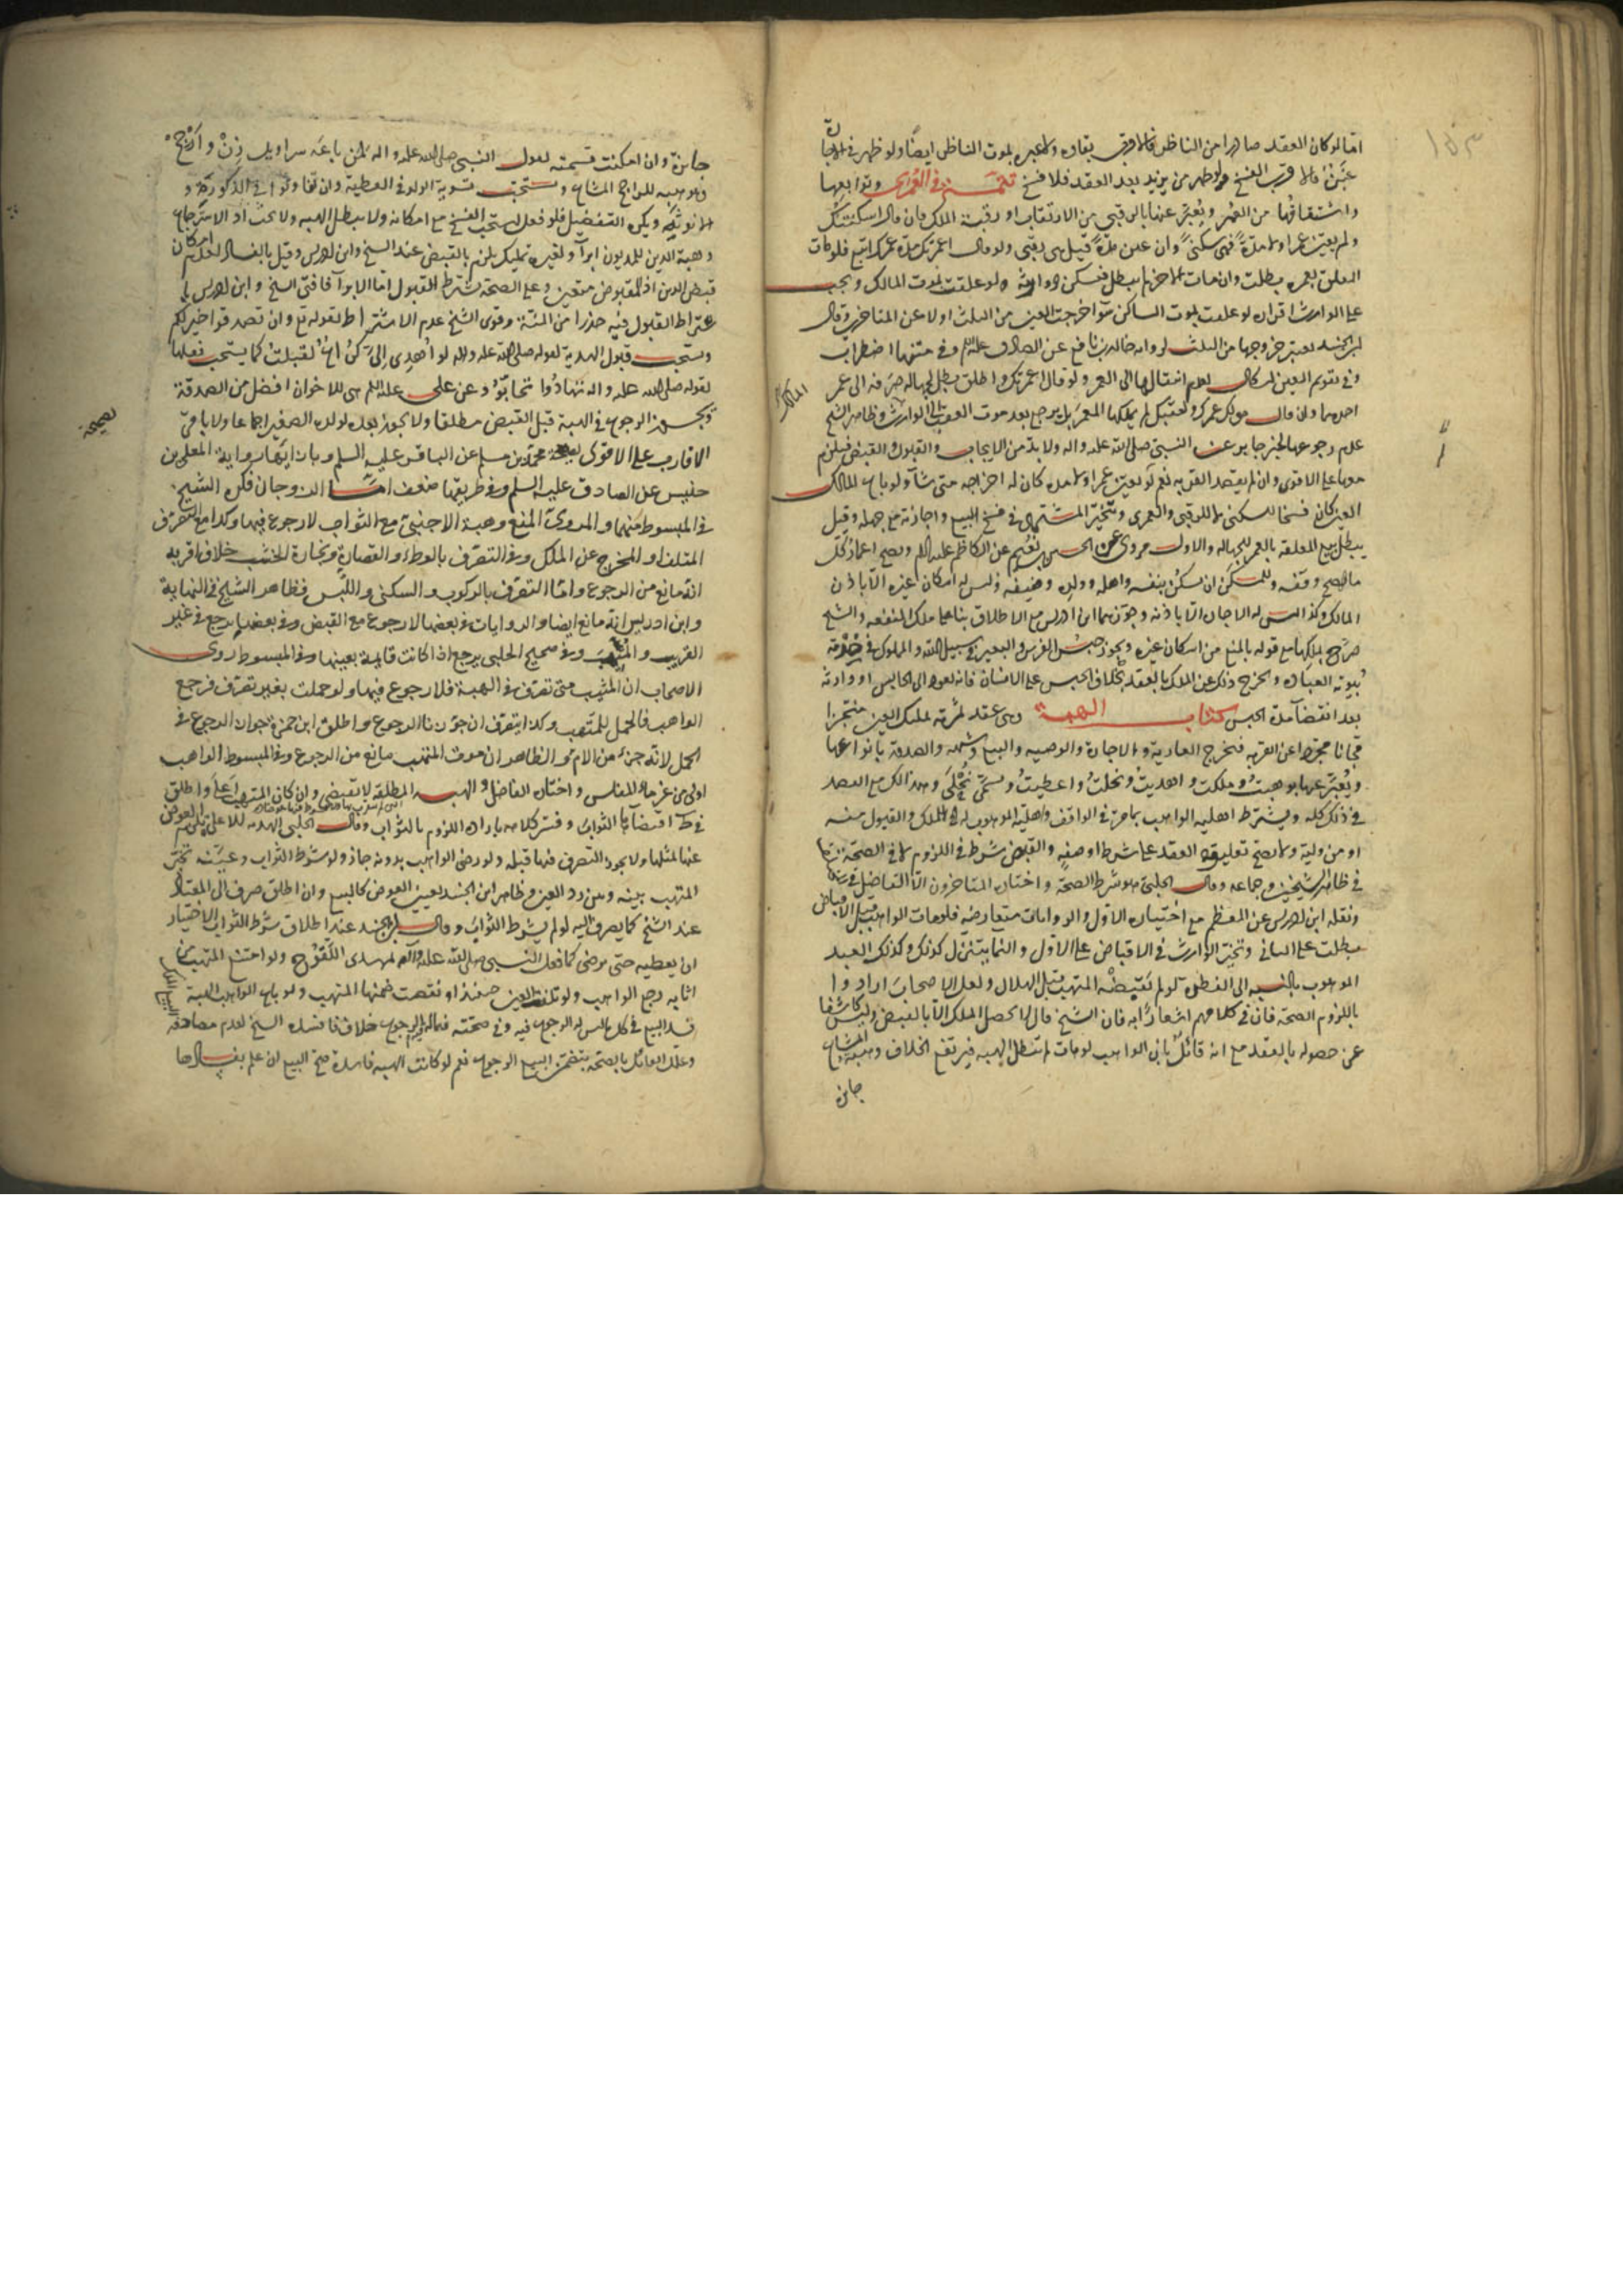 اما لو كان العقد صادرا من الناظر فالاقرب بقاؤه ولا عبرة بموت الناظر ايضا ولو ظهر في الاجارة
غبن فالاقرب الفسخ ولو ظهر من يزيد بعد العقد فلا فسخ تتمة في العمرى وتوابعها
واشتقاقها من العمر ويعبر عنها بالرقبى من الارتقاب او رقبة الملك فان قال اسكنتك
ولم يعين عمرا ولا مدة فهي سكنى وان عين مدة قيل هي رقبى ولو قال اعمرتك مدة عمرك اتبع فلو مات
المعلق بعمره بطلت وان مات الاخر لم يبطل فيسكن وارثه ولو علقت بموت المالك وجب
على الوارث اقراره لو علقت بموت الساكن سواء خرجت العين من الثلث اولا عن المتاخرين وقال
ابن الجنيد يعتبر خروجها من الثلث لرواية خالد بن نافع عن الصادق عليه السلم وفي متنها اضطراب
وفي تقويم العين اشكال لعدم انتقالها الى المعمر ولو قال اعمرتك واطلق بطل لجهالة صرفه الى عمر
احدهما ولو قال هو لك عمرك ولعقبك لم يملكها المعمر بل يرجع بعد موت العقب الى الوارث وظاهر الشيخ
المالك
عدم رجوعها لخبر جابر عن النبي صلى الله عليه واله ولا بد من الايجاب والقبول والقبض فيلزم
معها على الاقوى وان لم يقصد القربة نعم لو لم يعين عمرا ولا مدة كان له اخراجه متى شاء ولو باع المالك
العين كان فسخا للسكنى لا للرقبى والعمرى ويتخير المشتري في فسخ البيع واجازته مع جهله وقيل
يبطل بيع المعلقة بالعمر للجهالة والاول مروى عن الحسين بن نعيم عن الكاظم عليه السلم ويصح اعمار كل
ما يصح وقفه وللمتسكن ان يسكن بنفسه واهله وولده وضيفه وليس له اسكان غيره الا باذن
المالك وكذا ليس له الاجارة الا باذنه وجوزهما ابن ادريس مع الاطلاق بناء على ملك المنفعة والشيخ
صرح بملكها مع قوله بالمنع من اسكان غيره ويجوز حبس الفرس والبعير في سبيل الله والمملوك في خدمة
بيوته العبادة ويخرج ذلك عن الملك بالعقد بخلاف الحبس على الانسان فانه يعود الى الحابس او وارثه
بعد انقضاء مدة الحبس كتاب الهبة وهي عقد ثمرته تمليك العين منجزا
مجانا مجردا عن القربة فتخرج العارية والاجارة والوصية والبيع والصدقة بانواعها
ويعبر عنها بوهبت وملكت واهديت ونحلت واعطيت وتسمى نحلى وهذا لك مع القصد
في ذلك كله ويشترط اهلية الواهب بما مر في الواقف واهلية الموهوب له للملك والقبول منه
او من وليه ولا يصح تعليق العقد على شرط او صفة والقبض شرط في اللزوم لا في الصحة
في ظاهر الشيخين وجماعة وقال الحلبي هو شرط الصحة واختاره المتاخرون
ونقله ابن ادريس عن المعظم مع اختياره الاول والروايات متعارضة فلو مات الواهب قبل الاقباض
بطلت على الثاني وتخير الوارث في الاقباض على الاول والنماء يتنزل كذلك وكذلك العبد
الموهوب بالنسبة الى الفطرة لو لم يقبضه المتهب قبل الهلال ولعل الاصحاب ارادوا
باللزوم الصحة فان في كلامهم اشعارا به فان الشيخ قال لا يحصل الملك الا بالقبض وليس كاشفا
عن حصوله بالعقد مع انه قائل بان الواهب لو مات لم تبطل الهبة فيرتفع الخلاف وهبة المشاع
جائزة
جائزة وان امكنت قسمته لقول النبي صلى الله عليه واله لمن باعه سراويل زن وارجح
وهو هبة للراجح المشاع ويستحب تسوية الولد في العطية وان تفاوتوا في الذكورة و
الانوثة ويكره التفضيل فلو فعل يستحب الفسخ مع امكانه ولا يبطل الهبة ولا يجب الاسترجاع
وهبة الدين للمديون ابراء ولغيره تمليك يلزم بالقبض عند الشيخ وابن ادريس وقيل بالفساد لعدم امكان
قبض الدين اذ المقبوض متعين وعلى الصحة يشترط القبول اما الابراء فافتى الشيخ وابن ادريس
باشتراط القبول فيه حذرا من المنة وقوى الشيخ عدم الاشتراط لقوله تع وان تصدقوا خير لكم
ويستحب قبول الهدية لقوله صلى الله عليه واله لو اهدي الي كراع لقبلت كما يستحب فعلها
لقوله صلى الله عليه واله تهادوا تحابوا وعن علي عليه السلم هي للاخوان افضل من الصدقة
ويجوز الرجوع في الهبة قبل القبض مطلقا ولا يجوز بعده لولده الصغير اجماعا ولا باقي
الاقارب على الاقوى لصحيحة محمد بن مسلم عن الباقر عليه السلم وبازائها رواية المعلى بن
صحيحة
خنيس عن الصادق عليه السلم وفي طريقها ضعف اما الزوجان فكره الشيخ
في المبسوط منهما والمروي المنع وهبة الاجنبي مع الثواب لا رجوع فيها وكذا مع التصرف
المتلف او المخرج عن الملك وفي التصرف بالوطء والقصارة ونجارة الخشب خلاف اقربه
انه مانع من الرجوع واما التصرف بالركوب والسكنى واللبس فظاهر الشيخ في النهاية
وابن ادريس انه مانع ايضا والروايات في بعضها لا رجوع مع القبض وفي بعضها يرجع في غير
القريب والمثيب وفي صحيح الحلبي يرجع اذا كانت قايمة بعينها وفي المبسوط روى
الاصحاب ان المتهب متى تصرف في الهبة فلا رجوع فيها ولو حملت بغير تصرف فرجع
الواهب فالحمل للمتهب وكذا بتصرف ان جوزنا الرجوع واطلق ابن حمزة جواز الرجوع في
الحمل لانه جزء من الام والظاهر ان موت المتهب مانع من الرجوع وفي المبسوط الواهب
اولى من غرماء المفلس واختاره الفاضل والهبة المطلقة لا تقتضي وان كان المتهب اعلى واطلق
في ط اقتضاء الثواب وفسر كلامه بارادة اللزوم بالثواب وقال الحلبي الهدية للاعلى تلزم العوض
عنها بمثلها ولا يجوز التصرف فيها قبله ولو رضي الواهب بدونه جاز ولو شرط الثواب وعينه تخير
المتهب بينه وبين رد العين وظاهر ابن الجنيد تعيين العوض كالبيع وان اطلق صرف الى المعتاد
عند الشيخ كما يصرف اليه لو لم يشرط الثواب وقال ابن الجنيد عند اطلاق شرط الثواب الاختيار
ان يعطيه حتى يرضى كما فعل النبي صلى الله عليه واله لمهدي اللقوح ولو امتنع المتهب من
اثابه رجع الواهب ولو تلفت العين او نقصت ضمنها المتهب ولو باع الواهب الهبة
فسد البيع في كل ما ليس له الرجوع فيه وفي صحته فيما له الرجوع خلاف فافسده الشيخ لعدم مصادفة
البيع الملك
وعلل القائل بالصحة بتضمن البيع الرجوع نعم لو كانت الهبة فاسدة صح البيع ان علم بفسادها